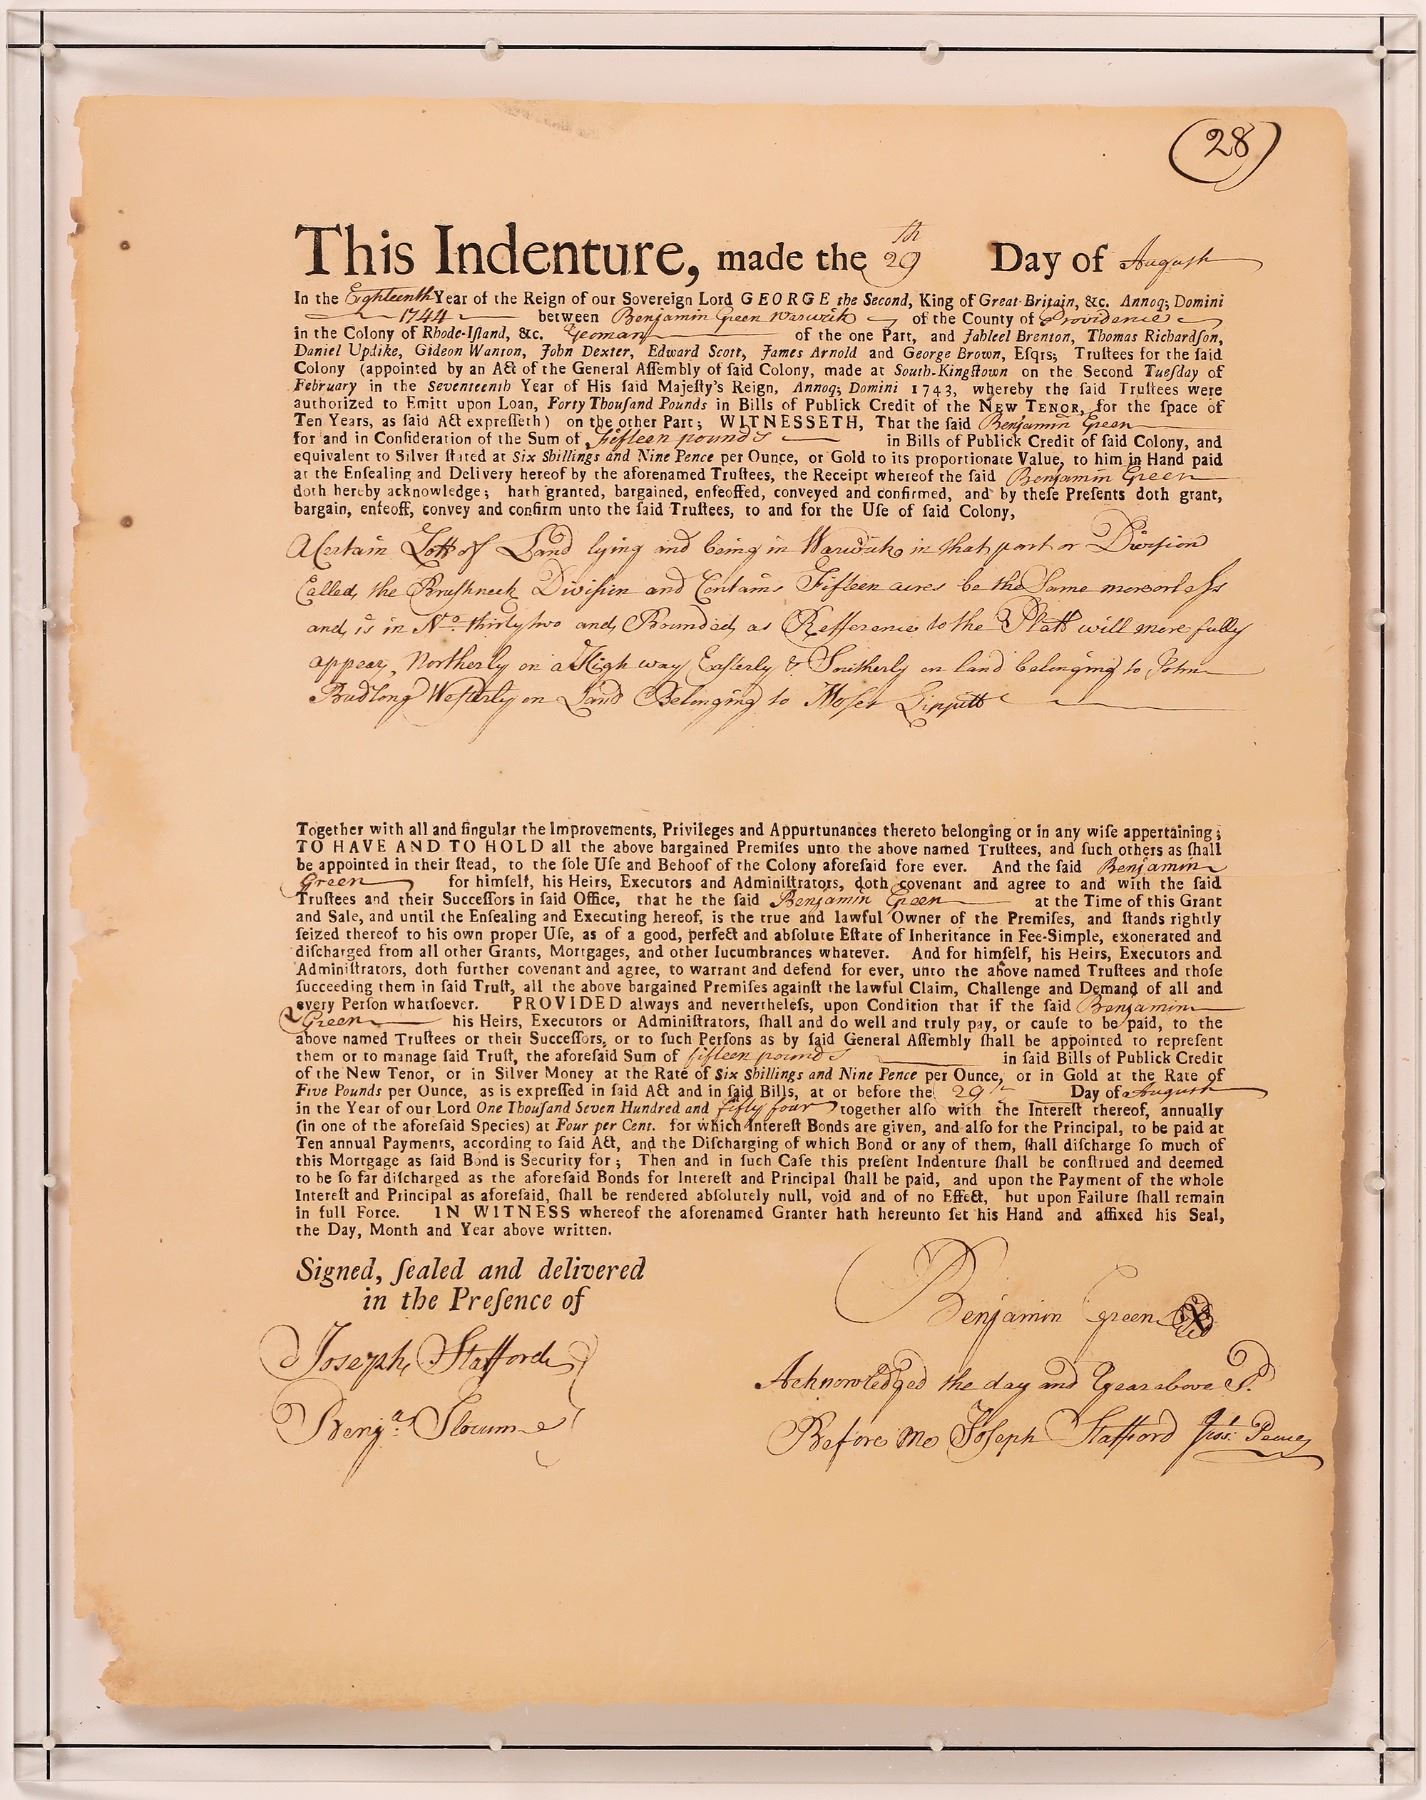 (28)
This Indenture, made the 29th Day of August
In the Eighteenth Year of the Reign of our Sovereign Lord GEORGE the Second, King of Great-Britain, &c. Annoq; Domini
1744 between Benjamin Green Warwick of the County of Providence
in the Colony of Rhode-Iſland, &c. Yeoman of the one Part, and Jahleel Brenton, Thomas Richardſon,
Daniel Updike, Gideon Wanton, John Dexter, Edward Scott, James Arnold and George Brown, Eſqrs; Truſtees for the ſaid
Colony (appointed by an Act of the General Aſſembly of ſaid Colony, made at South-Kingſtown on the Second Tueſday of
February in the Seventeenth Year of His ſaid Majeſty's Reign, Annoq; Domini 1743, whereby the ſaid Truſtees were
authorized to Emitt upon Loan, Forty Thouſand Pounds in Bills of Publick Credit of the NEW TENOR, for the ſpace of
Ten Years, as ſaid Act expreſſeth) on the other Part; WITNESSETH, That the ſaid Benjamin Green
for and in Conſideration of the Sum of Fifteen pounds in Bills of Publick Credit of ſaid Colony, and
equivalent to Silver ſtated at Six Shillings and Nine Pence per Ounce, or Gold to its proportionate Value, to him in Hand paid
at the Enſealing and Delivery hereof by the aforenamed Truſtees, the Receipt whereof the ſaid Benjamin Green
doth hereby acknowledge; hath granted, bargained, enfeoffed, conveyed and confirmed, and by theſe Preſents doth grant,
bargain, enfeoff, convey and confirm unto the ſaid Truſtees, to and for the Uſe of ſaid Colony,
A Certain Lott of Land lying and being in Warwick in that part or Diviſion
Called the Bruſhneck Diviſion and Contains Fifteen acres be the Same more or leſs
and is in No. thirty two and Bounded as Refference to the Platt will more fully
appear, Northerly on a High way Easterly & Southerly on land belonging to John
Budlong Weſterly on Land Belonging to Moſes Lippitt
Together with all and ſingular the Improvements, Privileges and Appurtunances thereto belonging or in any wiſe appertaining;
TO HAVE AND TO HOLD all the above bargained Premiſes unto the above named Truſtees, and ſuch others as ſhall
be appointed in their ſtead, to the ſole Uſe and Behoof of the Colony aforeſaid fore ever. And the ſaid Benjamin
Green for himſelf, his Heirs, Executors and Adminiſtrators, doth covenant and agree to and with the ſaid
Truſtees and their Succeſſors in ſaid Office, that he the ſaid Benjamin Green at the Time of this Grant
and Sale, and until the Enſealing and Executing hereof, is the true and lawful Owner of the Premiſes, and ſtands rightly
ſeized thereof to his own proper Uſe, as of a good, perfect and abſolute Eſtate of Inheritance in Fee-Simple, exonerated and
diſcharged from all other Grants, Mortgages, and other Iucumbrances whatever. And for himſelf, his Heirs, Executors and
Adminiſtrators, doth further covenant and agree, to warrant and defend for ever, unto the above named Truſtees and thoſe
ſucceeding them in ſaid Truſt, all the above bargained Premiſes againſt the lawful Claim, Challenge and Demand of all and
every Perſon whatſoever. PROVIDED always and nevertheleſs, upon Condition that if the ſaid Benjamin
Green his Heirs, Executors or Adminiſtrators, ſhall and do well and truly pay, or cauſe to be paid, to the
above named Truſtees or their Succeſſors, or to ſuch Perſons as by ſaid General Aſſembly ſhall be appointed to repreſent
them or to manage ſaid Truſt, the aforeſaid Sum of fifteen pounds in ſaid Bills of Publick Credit
of the New Tenor, or in Silver Money at the Rate of Six Shillings and Nine Pence per Ounce, or in Gold at the Rate of
Five Pounds per Ounce, as is expreſſed in ſaid Act and in ſaid Bills, at or before the 29th Day of August
in the Year of our Lord One Thouſand Seven Hundred and fifty four together alſo with the Intereſt thereof, annually
(in one of the aforeſaid Species) at Four per Cent. for which Intereſt Bonds are given, and alſo for the Principal, to be paid at
Ten annual Payments, according to ſaid Act, and the Diſcharging of which Bond or any of them, ſhall diſcharge ſo much of
this Mortgage as ſaid Bond is Security for; Then and in ſuch Caſe this preſent Indenture ſhall be conſtrued and deemed
to be ſo far diſcharged as the aforeſaid Bonds for Intereſt and Principal ſhall be paid, and upon the Payment of the whole
Intereſt and Principal as aforeſaid, ſhall be rendered abſolutely null, void and of no Effect, but upon Failure ſhall remain
in full Force. IN WITNESS whereof the aforenamed Granter hath hereunto ſet his Hand and affixed his Seal,
the Day, Month and Year above written.
Signed, ſealed and delivered
in the Preſence of
Joseph Stafford
Benja. Slocum
Benjamin Green
Acknowledged the day and Year above
Before Me Joſeph Stafford Jus: Peace